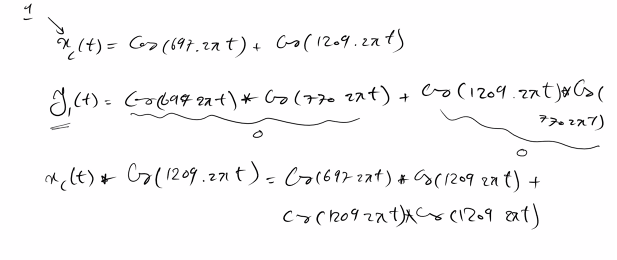 1
x_c(t) = Cos(697.2πt) + Cos(1209.2πt)
y_1(t) = Cos(697 2πt) * Cos(770 2πt) + Cos(1209.2πt) * Cos(
770 2πt)
0
0
x_c(t) * Cos(1209.2πt) = Cos(697 2πt) * Cos(1209 2πt) +
Cos(1209 2πt) * Cos(1209 2πt)